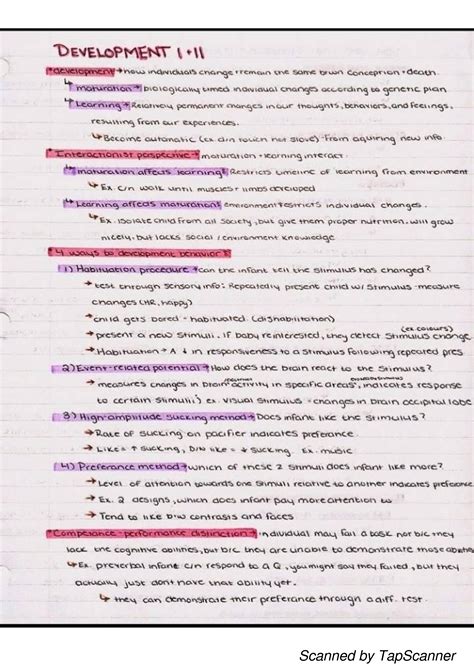 DEVELOPMENT I + II
* development → how individuals change + remain the same b/wn conception + death.
↳ maturation → biologically timed individual changes according to genetic plan
↳ Learning → Relatively permanent changes in our thoughts, behaviors, and feelings,
resulting from our experiences.
↳ Become automatic (ex. d/n touch hot stove) → From aquiring new info
* Interactionist perspective → maturation + learning interact.
↳ maturation affects learning: Restricts timeline of learning from environment
↳ Ex. c/n walk until muscles + limbs developed
↳ Learning affects maturation: environment restricts individual changes.
↳ Ex. Isolate child from all society, but give them proper nutrition. will grow
nicely, but lacks social / environment knowledge
* 4 ways to development behavior:
1) Habituation procedure → can the infant tell the stimulus has changed?
→ test through sensory info: Repeatedly present child w/ stimulus - measure
changes (HR, happy)
→ child gets bored = habituated. (dishabilitation)
→ present a new stimuli. If baby re interested, they detect stimulus change
(ex colours)
→ Habituation → ↓ in responsiveness to a stimulus following repeated pres
2) Event-related potential → How does the brain react to the stimulus?
→ measures changes in brain activity in specific areas, indicates response
to certain stimuli; ex. visual stimulus = changes in brain occipital lobe
3) High-amplitude sucking method → Does infant like the stimulus?
→ Rate of sucking on pacifier indicates preferance.
→ Like = ↑ sucking, D/N like = ↓ sucking. Ex. music
4) Preferance method → which of these 2 stimuli does infant like more?
→ Level of attention towards one stimuli relative to another indicates preferance
→ Ex. 2 designs, which does infant pay more attention to
→ Tend to like b/w contrasts and faces
* Competance-performance distinction → individual may fail a task not b/c they
lack the cognitive abilities, but b/c they are unable to demonstrate those abilities
↳ Ex. preverbal infant c/n respond to a Q, you might say they failed, but they
actually just dont have that ability yet.
↳ they can demonstrate their preferance through a diff. test.
Scanned by TapScanner